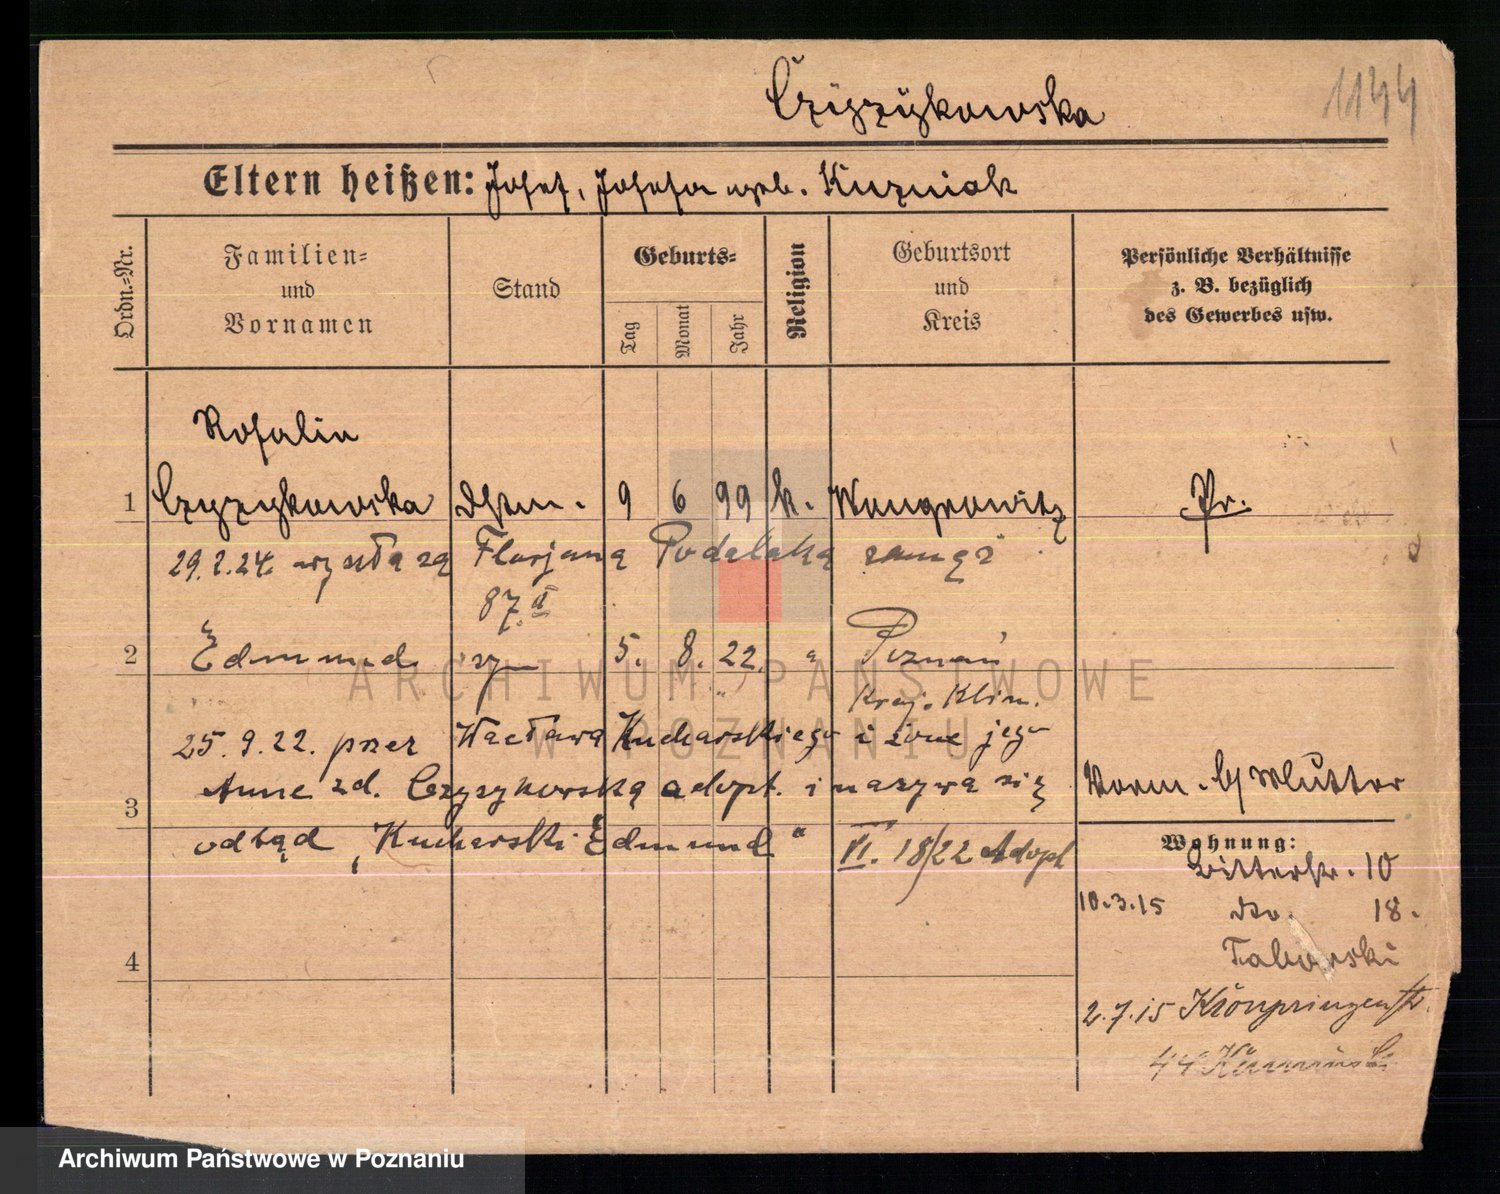 Czyżykowska
1144
Eltern heißen: Josef, Josefa geb. Kuzniak
Ordn.-Nr.
Familien-
und
Vornamen
Stand
Geburts-
Tag
Monat
Jahr
Religion
Geburtsort
und
Kreis
Persönliche Verhältnisse
z. B. bezüglich
des Gewerbes usw.
Rosalia
1 Czyzykowska 9 6 99 k. Wongrowitz Pr.
29.2.24. wyszła zą Florjana Podelaką zamąż
87. II
2 Edmund syn 5. 8. 22. " Poznań
Kraj. Klin.
25.9.22. przez Wacława Kucharskiego i żonę jego
Annę zd. Czyzykowską adopt. i nazywa się
3
odtąd „Kucharski Edmund" VI. 18/22 Adopt
Vorm. Mutter
Wohnung:
Ritterstr. 10
10.3.15 do. 18.
Taborski
4
2.7.15 Kronprinzenstr.
44
ARCHIWUM PAŃSTWOWE
W POZNANIU
Archiwum Państwowe w Poznaniu